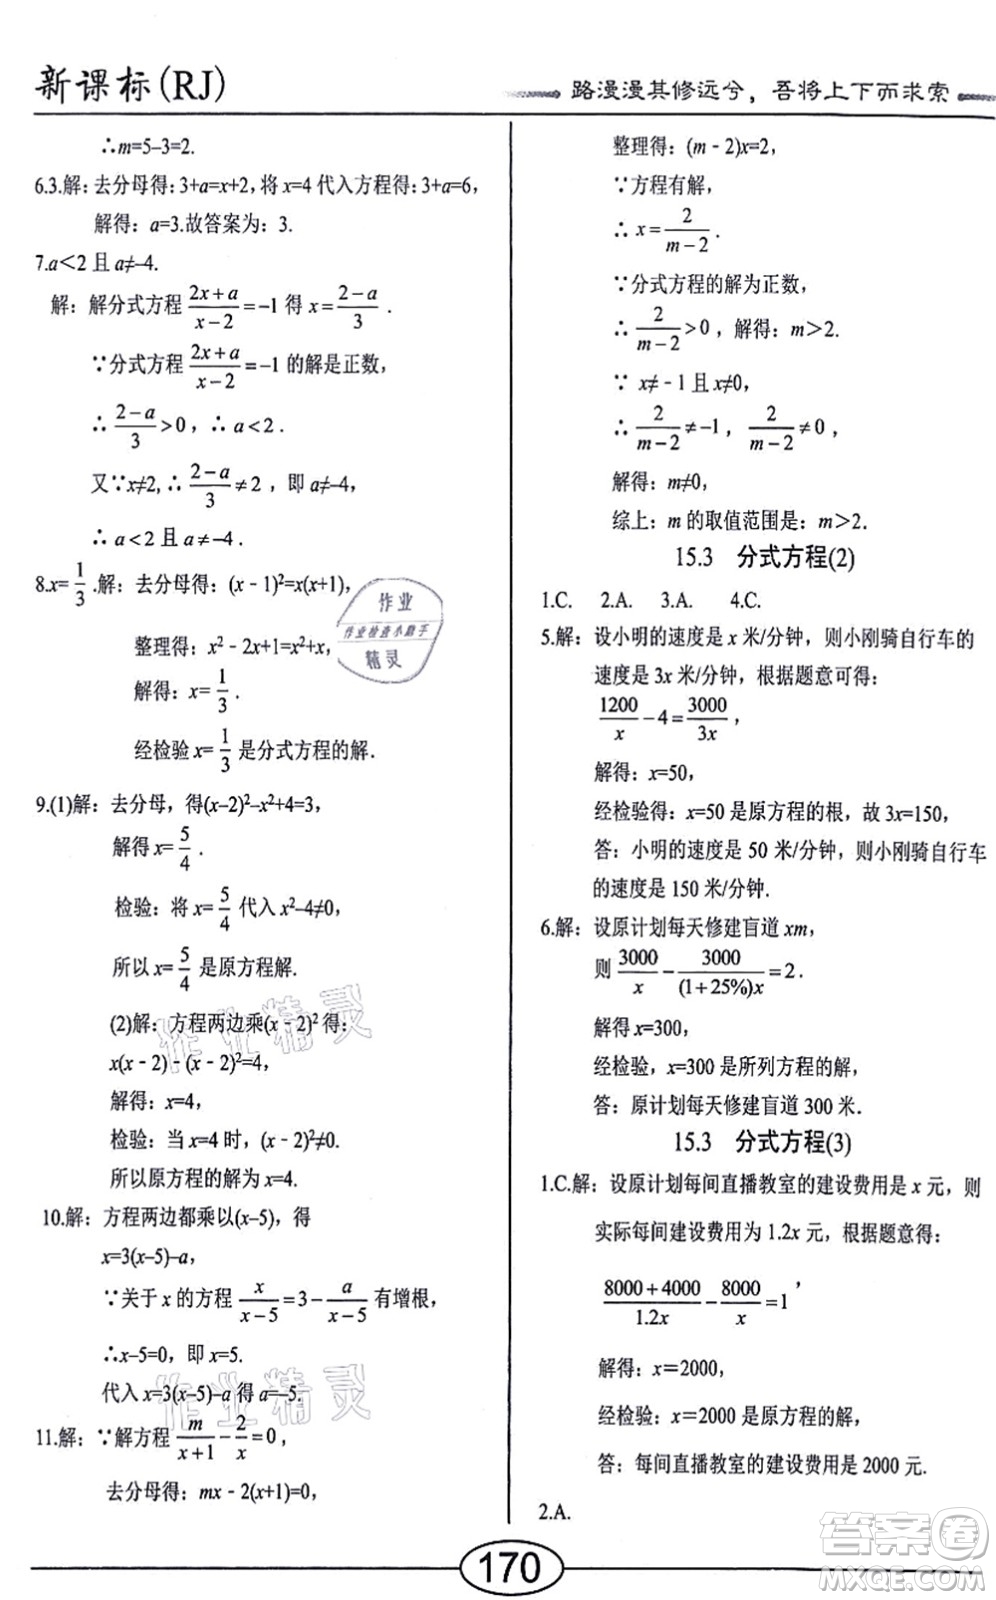 新课标(RJ)
路漫漫其修远兮，吾将上下而求索
∴m=5–3=2.
6.3.解：去分母得：3+a=x+2，将 x=4 代入方程得：3+a=6，
解得：a=3.故答案为：3.
7.a＜2 且 a≠–4.
解：解分式方程 (2x+a)/(x−2)=–1 得 x=(2−a)/3 .
∵分式方程 (2x+a)/(x−2)=–1 的解是正数，
∴(2−a)/3>0，∴a<2 .
又∵x≠2,∴(2−a)/3≠2，即 a≠–4，
∴a<2 且 a≠−4 .
8.x=1/3 .解：去分母得：(x﹣1)²=x(x+1)，
整理得：x²﹣2x+1=x²+x，
解得：x=1/3 .
经检验 x=1/3 是分式方程的解.
9.(1)解：去分母，得(x–2)²–x²+4=3，
解得 x=5/4 .
检验：将 x=5/4 代入 x²–4≠0，
所以 x=5/4 是原方程解.
(2)解：方程两边乘(x﹣2)²得：
x(x﹣2)﹣(x﹣2)²=4，
解得：x=4，
检验：当 x=4 时，(x﹣2)²≠0.
所以原方程的解为 x=4.
10.解：方程两边都乘以(x–5)，得
x=3(x–5)–a，
∵关于 x 的方程 x/(x−5)=3−a/(x−5) 有增根，
∴x–5=0，即 x=5.
代入 x=3(x–5)–a 得 a=–5.
11.解：∵解方程 m/(x+1)−2/x=0，
去分母得：mx﹣2(x+1)=0，
整理得：(m﹣2)x=2，
∵方程有解，
∴x=2/(m−2) .
∵分式方程的解为正数，
∴2/(m−2)>0，解得：m＞2.
∵ x≠﹣1 且 x≠0，
∴2/(m−2)≠−1，2/(m−2)≠0，
解得：m≠0，
综上：m 的取值范围是：m＞2.
15.3 分式方程(2)
1.C. 2.A. 3.A. 4.C.
5.解：设小明的速度是 x 米/分钟，则小刚骑自行车的
速度是 3x 米/分钟，根据题意可得：
1200/x−4=3000/3x，
解得：x=50，
经检验得：x=50 是原方程的根，故 3x=150，
答：小明的速度是 50 米/分钟，则小刚骑自行车
的速度是 150 米/分钟.
6.解：设原计划每天修建盲道 xm，
则 3000/x−3000/((1+25%)x)=2 .
解得 x=300，
经检验，x=300 是所列方程的解，
答：原计划每天修建盲道 300 米.
15.3 分式方程(3)
1.C.解：设原计划每间直播教室的建设费用是 x 元，则
实际每间建设费用为 1.2x 元，根据题意得：
(8000+4000)/1.2x−8000/x=1，
解得：x=2000，
经检验：x=2000 是原方程的解，
答：每间直播教室的建设费用是 2000 元.
2.A.
170
作业
作业检查小助手
精灵
作业精灵
作业精灵
答案圈
MXQE.COM